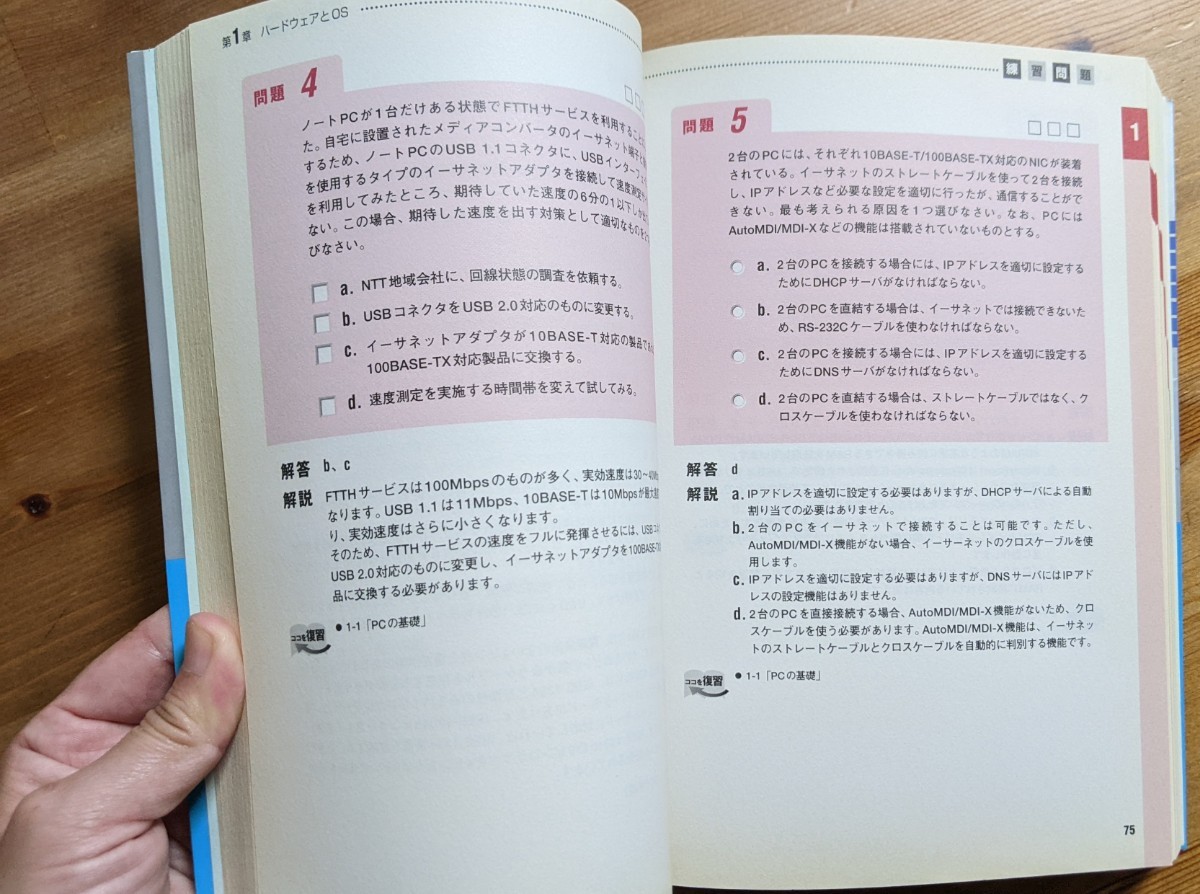 第1章 ハードウェアとOS
問題 4
ノートPCが1台だけある状態でFTTHサービスを利用すること
た。自宅に設置されたメディアコンバータのイーサネット端子と
するため、ノートPCのUSB 1.1コネクタに、USBインターフ
を使用するタイプのイーサネットアダプタを接続して速度測定
を利用してみたところ、期待していた速度の6分の1以下しか
ない。この場合、期待した速度を出す対策として適切なものを2
びなさい。
a. NTT地域会社に、回線状態の調査を依頼する。
b. USBコネクタをUSB 2.0対応のものに変更する。
c. イーサネットアダプタが10BASE-T対応の製品であ
100BASE-TX対応製品に交換する。
d. 速度測定を実施する時間帯を変えて試してみる。
解答 b、c
解説 FTTHサービスは100Mbpsのものが多く、実効速度は30～40M
なります。USB 1.1は11Mbps、10BASE-Tは10Mbpsが最大
り、実効速度はさらに小さくなります。
そのため、FTTHサービスの速度をフルに発揮させるには、USBコ
USB 2.0対応のものに変更し、イーサネットアダプタを100BASE-
品に交換する必要があります。
ココを復習 ● 1-1「PCの基礎」
練習問題
1
問題 5
2台のPCには、それぞれ10BASE-T/100BASE-TX対応のNICが装着
されている。イーサネットのストレートケーブルを使って2台を接続
し、IPアドレスなど必要な設定を適切に行ったが、通信することがで
きない。最も考えられる原因を1つ選びなさい。なお、PCには
AutoMDI/MDI-Xなどの機能は搭載されていないものとする。
a. 2台のPCを接続する場合には、IPアドレスを適切に設定する
ためにDHCPサーバがなければならない。
b. 2台のPCを直結する場合は、イーサネットでは接続できないた
め、RS-232Cケーブルを使わなければならない。
c. 2台のPCを接続する場合には、IPアドレスを適切に設定する
ためにDNSサーバがなければならない。
d. 2台のPCを直結する場合は、ストレートケーブルではなく、ク
ロスケーブルを使わなければならない。
解答 d
解説 a. IPアドレスを適切に設定する必要はありますが、DHCPサーバによる自動
割り当ての必要はありません。
b. 2台のPCをイーサネットで接続することは可能です。ただし、
AutoMDI/MDI-X機能がない場合、イーサーネットのクロスケーブルを使
用します。
c. IPアドレスを適切に設定する必要はありますが、DNSサーバにはIPアド
レスの設定機能はありません。
d. 2台のPCを直接接続する場合、AutoMDI/MDI-X機能がないため、クロ
スケーブルを使う必要があります。AutoMDI/MDI-X機能は、イーサネッ
トのストレートケーブルとクロスケーブルを自動的に判別する機能です。
ココを復習 ● 1-1「PCの基礎」
75